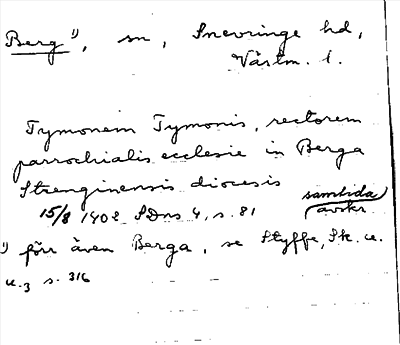 Berg ¹⁾, sn, Snevringe hd,
Västm. l.
Tymonem Tymonis, rectorem
parrochialis ecclesie in Berga
Strenginensis diocesis
15/8 1402 SDns 4, s. 81 samtida avskr.
¹⁾ förr även Berga, se Styffe, Sk. u.
u.3 s. 316